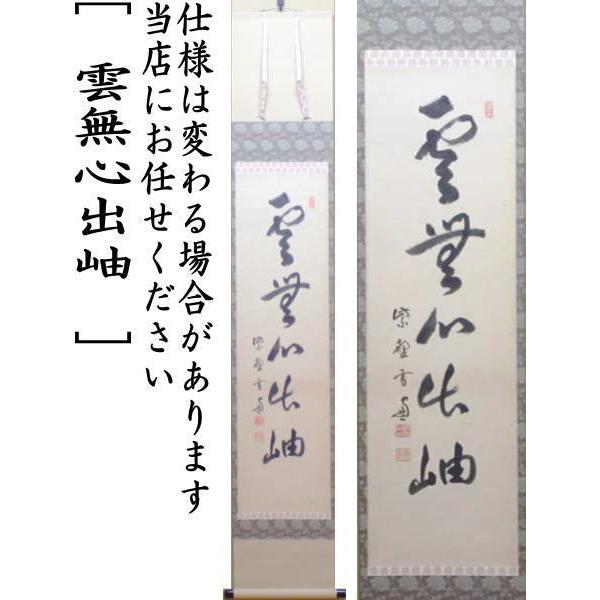 仕様は変わる場合があります
当店にお任せください
[ 雲無心出岫 ]
雲無心出岫
雲無心出岫